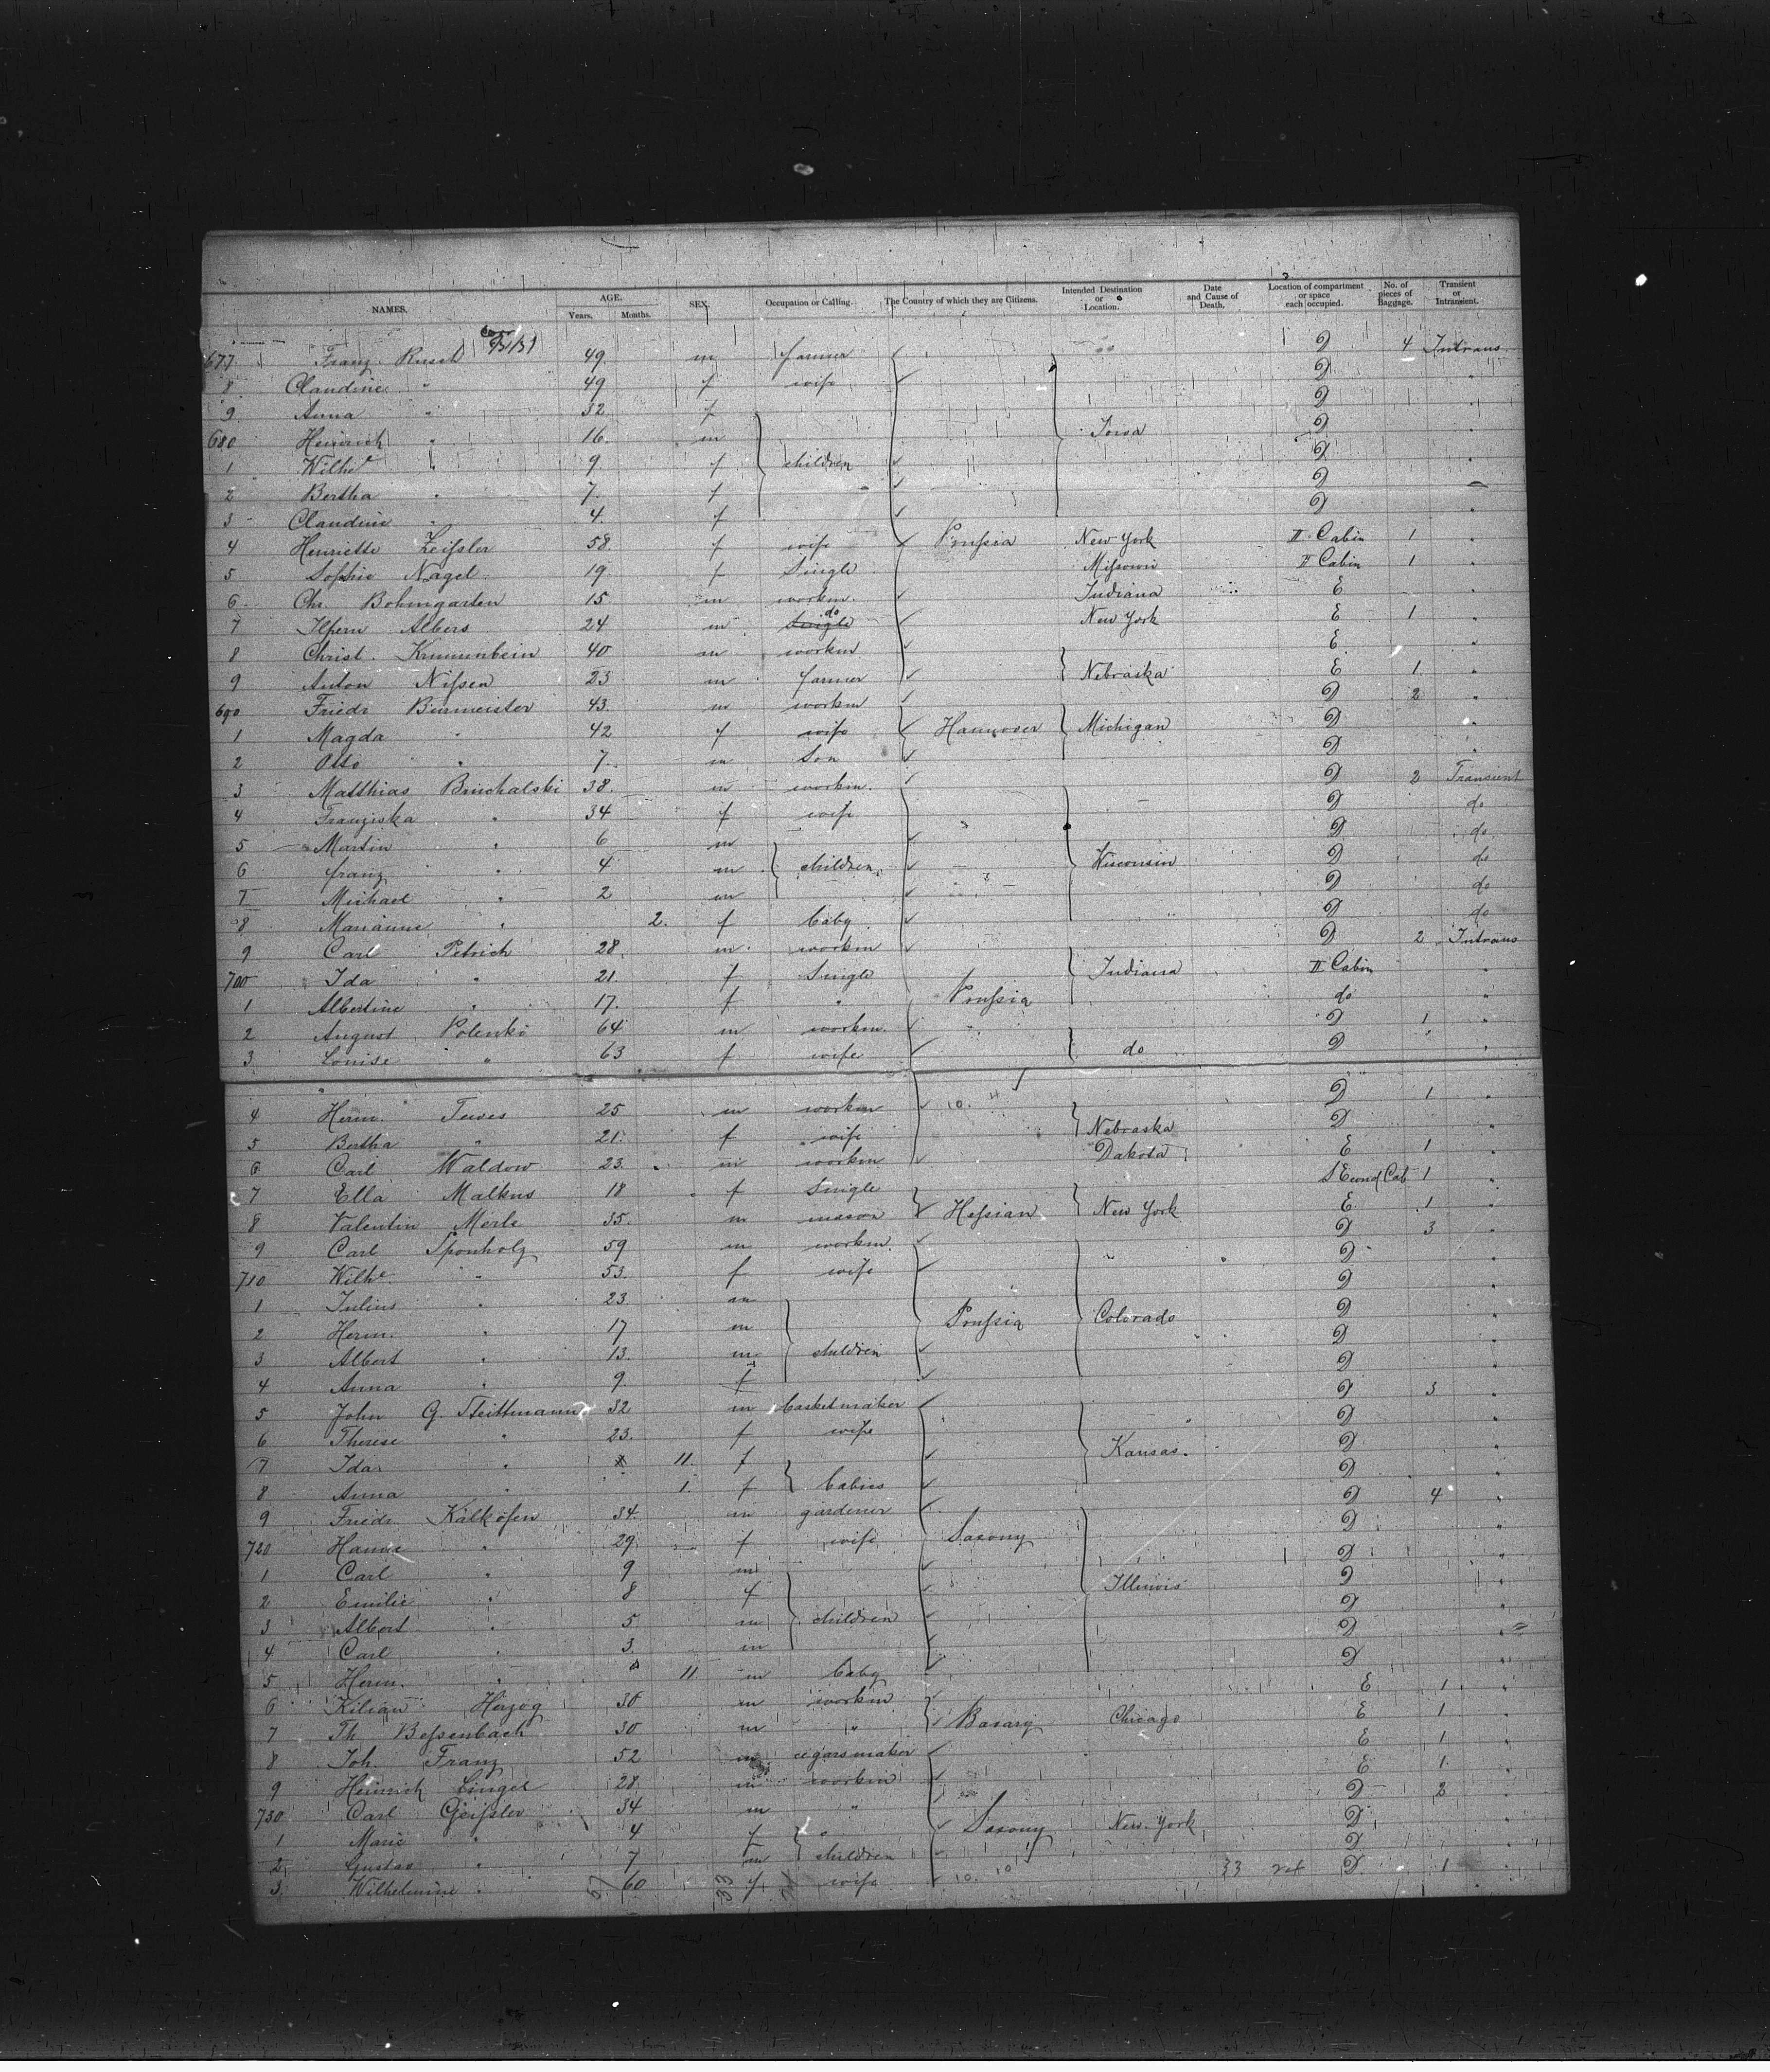 NAMES. AGE. Years. Months. SEX. Occupation or Calling. The Country of which they are Citizens. Intended Destination or Location. Date and Cause of Death. Location of compartment or space each occupied. No. of pieces of Baggage. Transient or Intransient.
677 Franz Rusch 49 m farmer D 4 Intrans
8 Claudine " 49 f wife D "
9 Anna " 32 f D "
680 Heinrich " 16 m Iowa D "
1 Wilhe " 9 f children D "
2 Bertha " 7 f D
3 Claudine " 4 f D "
4 Henriette Zeißler 58 f wife Prußia New York II Cabin 1 "
5 Sophie Nagel 19 f Single Mißouri II Cabin 1 "
6 Chr. Bohmgarten 15 m workm. Indiana E "
7 Albers 24 m do New York E 1 "
8 Christ. Krummbein 40 m workm E "
9 Anton Nißen 23 m farmer Nebraska E 1 "
690 Friedr Burmeister 43 m workm D 2 "
1 Magda " 42 f wife Hannover Michigan D "
2 Otto " 7 m Son D "
3 Matthias Bruchalski 38 m workm. D 2 Transient
4 Franziska " 34 f wife D do
5 Martin " 6 m D do
6 Franz " 4 m children Wisconsin D do
7 Michael " 2 m D do
8 Marianne " 2 f baby D do
9 Carl Petrich 28 m workm D 2 Intrans
700 Ida " 21 f Single Indiana II Cabin "
1 Albertine " 17 f " Prußia do "
2 August Polenki 64 m workm. D 1 "
3 Louise " 63 f wife do D "
4 Herm. Tewes 25 m workm D 1 "
5 Bertha " 21 f wife Nebraska D "
6 Carl Waldow 23 m workm Dakota E 1 "
7 Ella Malkus 18 f Single Second Cab 1 "
8 Valentin Merle 35 m mason Heßian New York E 1 "
9 Carl Sponholz 59 m workm. D 3 "
710 Wilhe " 53 f wife D "
1 Julius " 23 m D "
2 Herm. " 17 m Prußia Colorado D "
3 Albert " 13 m children D "
4 Anna " 9 f D "
5 John G. Steittmann 32 m basketmaker D 3 "
6 Therese " 23 f wife D "
7 Ida " 11 f Kansas. D "
8 Anna " 1 f babies D "
9 Friedr. Kalkofen 34 m gardener D 4 "
720 Hanne " 29 f wife Saxony D "
1 Carl " 9 m D "
2 Emilie " 8 f Illinois D "
3 Albert " 5 m children D "
4 Carl " 3 m D "
5 Herm. " 11 m baby D "
6 Kilian Herzog 30 m workm E 1 "
7 Th Beßenbach 30 m " Bavary Chicago E 1 "
8 Joh. Franz 52 m cigarsmaker E 1 "
9 Heinrich Lingel 28 m workm E 1 "
730 Carl Geißler 34 m " D 2 "
1 Marie " 4 f Saxony New York D
2 Gustav " 7 m children D
3 Wilhelmine " 60 f wife D 1 "